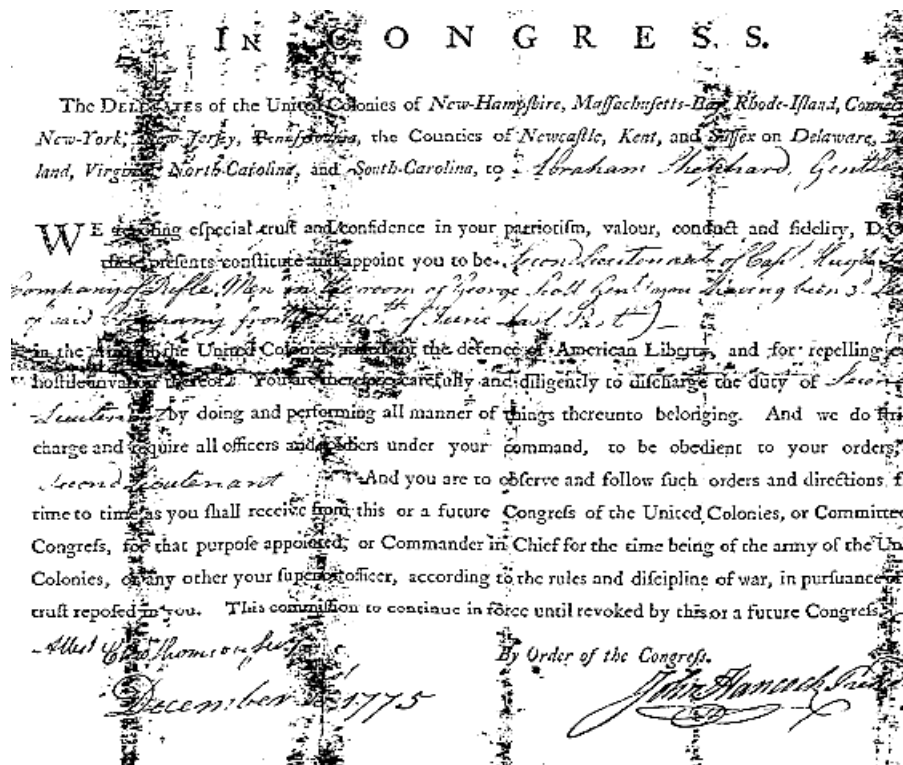 IN CONGRESS.
The DELEGATES of the United Colonies of New-Hampſhire, Maſſachuſetts-Bay, Rhode-Iſland,
New-York, New-Jerſey, Penſylvania, the Counties of Newcaſtle, Kent, and Suſſex on Delaware,
land, Virginia, North-Carolina, and South-Carolina, to Abraham Shephard, Gentle
WE repoſing eſpecial truſt and confidence in your patriotiſm, valour, conduct and fidelity, DO
theſe preſents conſtitute and appoint you to be Second Lieutenant of Capt Hugh
Company of Rifle Men in the room of George Scott Gent. you having been 3d
of said Company from the of June last Past)
in the army of the United Colonies, raiſed for the defence of American Liberty, and for repelling
hoſtile invaſion thereof. You are therefore carefully and diligently to diſcharge the duty of Second
Lieutenant by doing and performing all manner of things thereunto belonging. And we do
charge and require all officers and ſoldiers under your command, to be obedient to your orders,
Second Lieutenant And you are to obſerve and follow ſuch orders and directions
time to time as you ſhall receive from this or a future Congreſs of the United Colonies, or Committee
Congreſs, for that purpoſe appointed, or Commander in Chief for the time being of the army of the
Colonies, or any other your ſuperior officer, according to the rules and diſcipline of war, in purſuance of
truſt repoſed in you. This commiſſion to continue in force until revoked by this or a future Congreſs.
Attest Chas Thomson Secy
By Order of the Congreſs.
December 1775
John Hancock